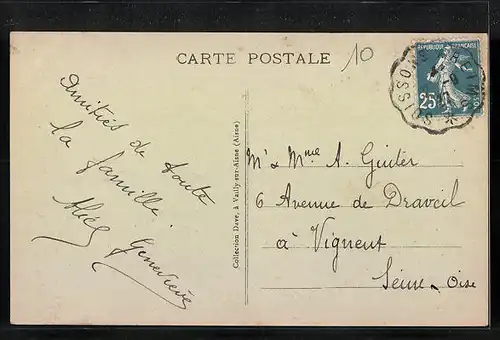 CARTE POSTALE
10
REPUBLIQUE FRANÇAISE
25
SOISSONS REIMS
Amitiés de toute
la famille.
Alice Geneviève
Collection Dave, à Vailly-sur-Aisne (Aisne)
Mr & Mme A.
6 Avenue de Draveil
à
Seine-Oise